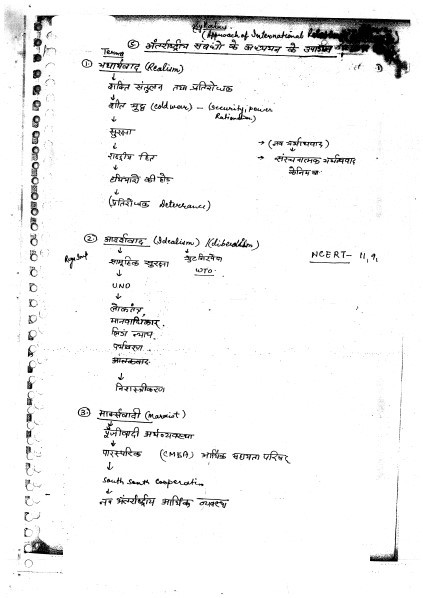 Syllabus
(Approach of International
⑤ अंतर्राष्ट्रीय संबंधों के अध्ययन के उपागम
① यथार्थवाद (Realism)
शक्ति संतुलन तथा प्रतिरोधक
शीत युद्ध (cold war) – (security, power
सुरक्षा
→ (नव यथार्थवाद)
राष्ट्रीय हित
→ संरचनात्मक यथार्थवाद
हथियारों की होड़
(प्रतिरोधक Deterrence)
② आदर्शवाद (Idealism) / (liberalism)
सामूहिक सुरक्षा
WTO
NCERT – 11,
UNO
लोकतंत्र,
मानवाधिकार,
लिंग न्याय
पर्यावरण
आतंकवाद
निशस्त्रीकरण
③ मार्क्सवादी (marxist)
पूँजीवादी अर्थव्यवस्था
पारस्परिक (CMEA) आर्थिक सहायता परिषद
South South Cooperation
नव अंतर्राष्ट्रीय आर्थिक व्यवस्था